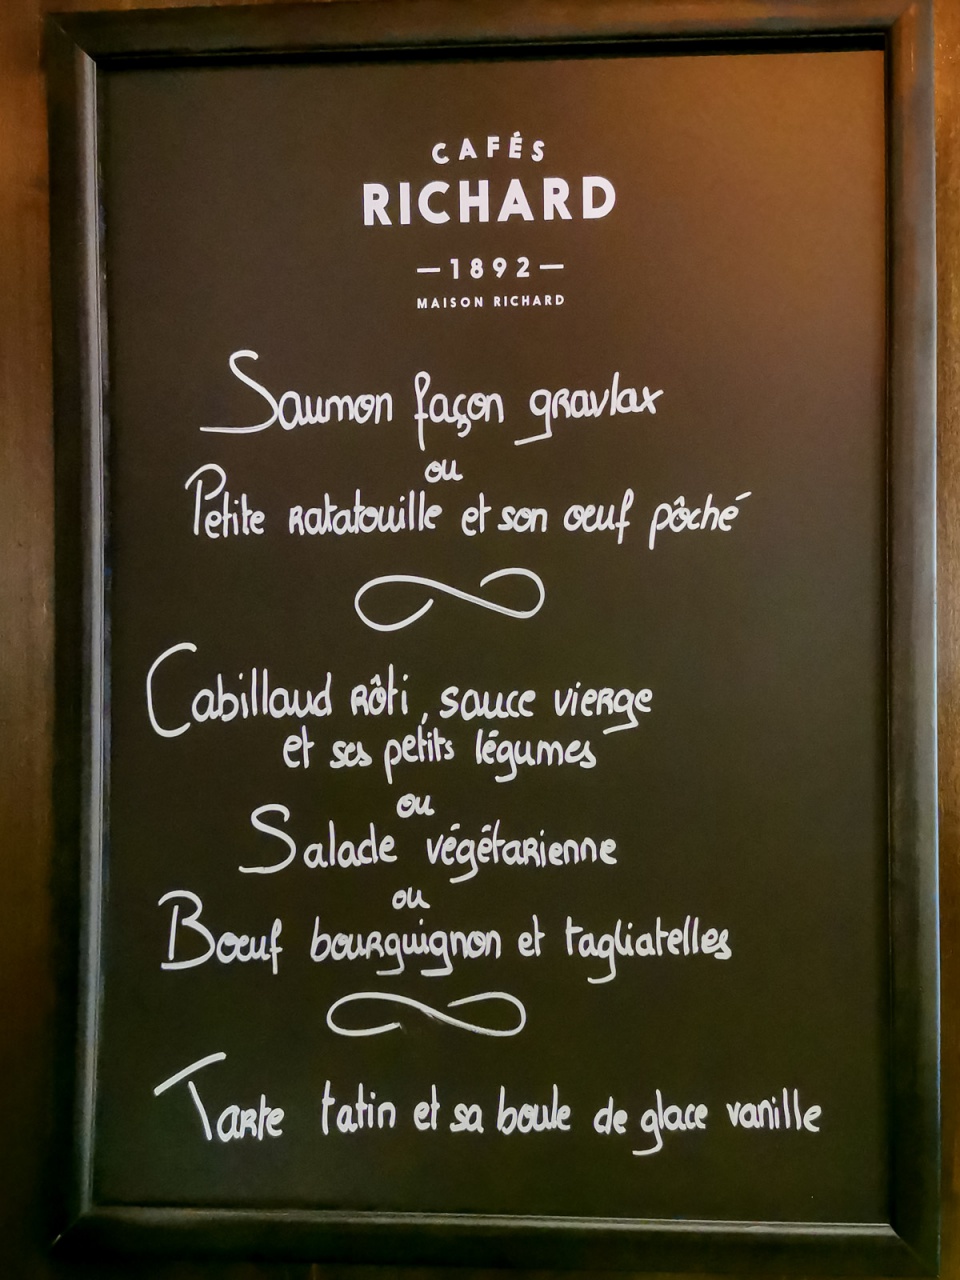 CAFÉS
RICHARD
—1892—
MAISON RICHARD
Saumon façon gravlax
ou
Petite ratatouille et son oeuf pôché
Cabillaud rôti, sauce vierge
et ses petits légumes
ou
Salade végétarienne
ou
Boeuf bourguignon et tagliatelles
Tarte tatin et sa boule de glace vanille